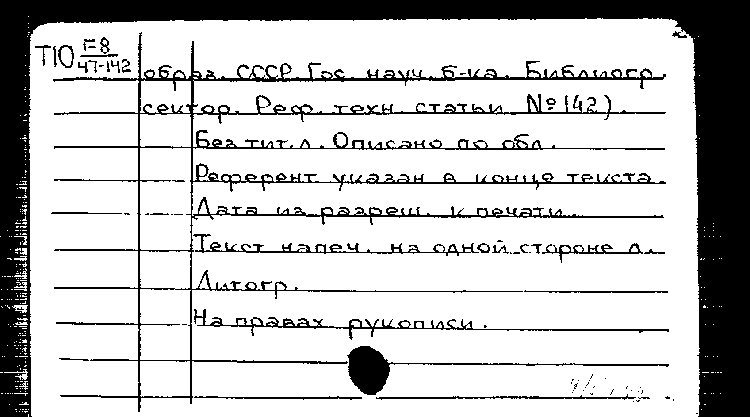 Т10 F-8
47-142
образ. СССР. Гос. науч. б-ка. Библиогр.
сектор. Реф. техн. статьи № 142).
Без тит. л. Описано по обл.
Референт указан в конце текста.
Дата из разреш. к печати.
Текст напеч. на одной стороне л.
Литогр.
На правах рукописи.